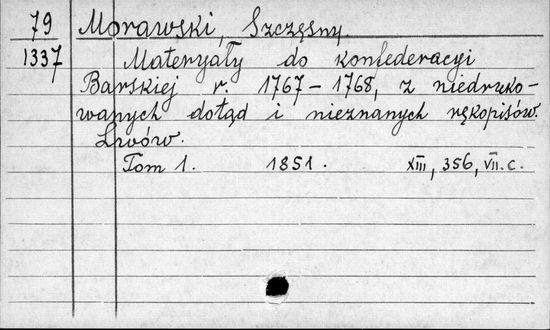 79 Morawski, Szczęsny.
1337 Materyały do konfederacyi
Barskiej r. 1767-1768, z niedruko-
wanych dotąd i nieznanych rękopisów.
Lwów.
Tom 1. 1851. XIII, 356, VII. c.